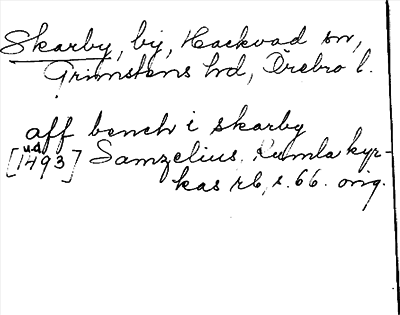 Skarby, by, Hackvad sn,
Grimstens hd, Örebro l.
aff bench i skarby
[u.å. 1493] Samzelius. Kumla kyr-
kas rb, s. 66. orig.